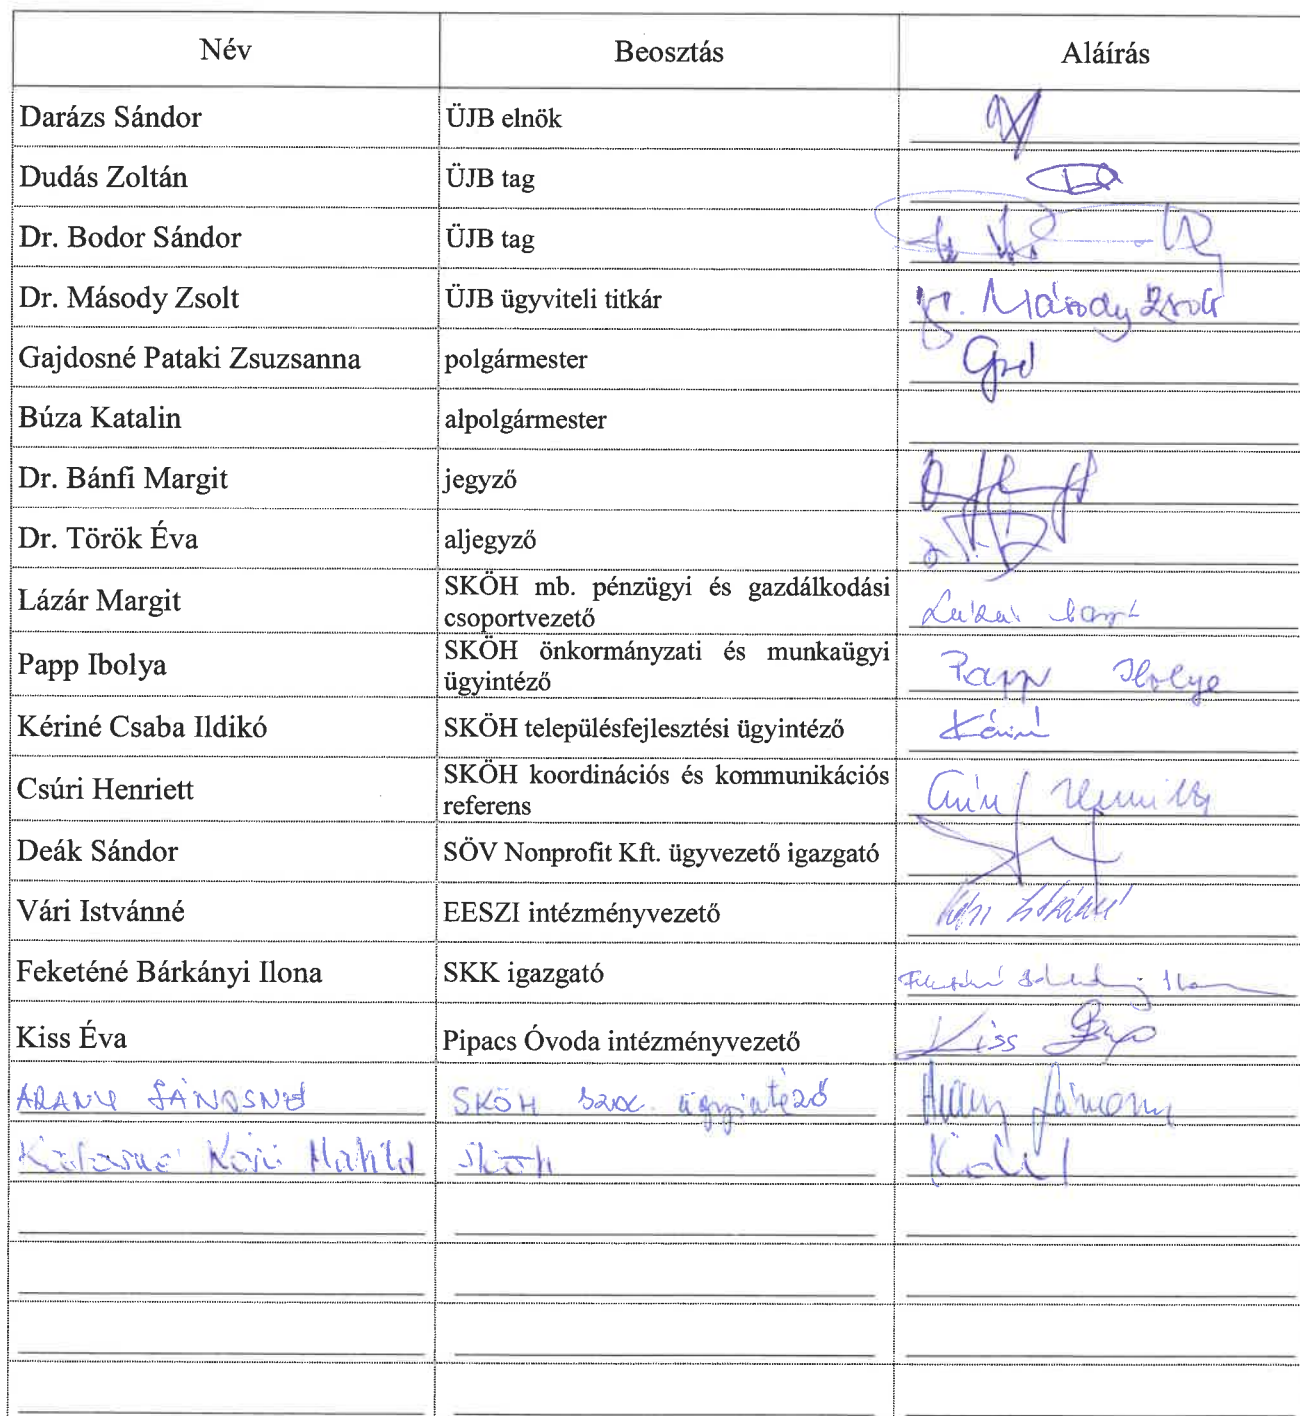 Név Beosztás Aláírás
Darázs Sándor ÜJB elnök
Dudás Zoltán ÜJB tag
Dr. Bodor Sándor ÜJB tag
Dr. Másody Zsolt ÜJB ügyviteli titkár Másody Zsolt
Gajdosné Pataki Zsuzsanna polgármester
Búza Katalin alpolgármester
Dr. Bánfi Margit jegyző
Dr. Török Éva aljegyző
Lázár Margit SKÖH mb. pénzügyi és gazdálkodási
csoportvezető
Papp Ibolya SKÖH önkormányzati és munkaügyi
ügyintéző Papp Ibolya
Kériné Csaba Ildikó SKÖH településfejlesztési ügyintéző Kériné
Csúri Henriett SKÖH koordinációs és kommunikációs
referens
Deák Sándor SÖV Nonprofit Kft. ügyvezető igazgató
Vári Istvánné EESZI intézményvezető Vári Istvánné
Feketéné Bárkányi Ilona SKK igazgató
Kiss Éva Pipacs Óvoda intézményvezető Kiss Éva
ARANY JÁNOSNÉ SKÖH szoc. ügyintéző Arany Jánosné
Matild SKÖH